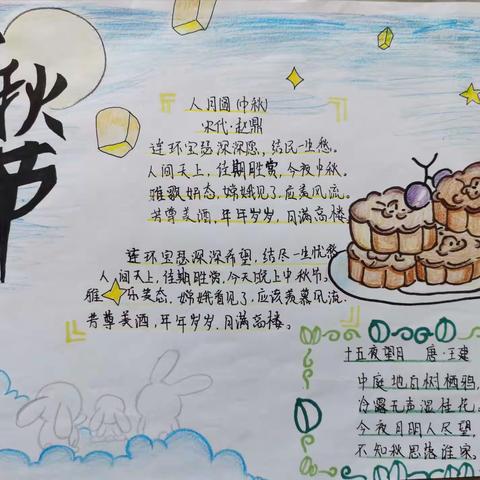 秋
节
人月圆(中秋)
宋代·赵鼎
连环宝瑟深深愿,结尽一生愁。
人间天上,佳期胜赏,今夜中秋。
雅歌妍态,嫦娥见了,应羡风流。
芳尊美酒,年年岁岁,月满高楼
连环宝瑟深深希望,结尽一生忧愁
人间天上,佳期胜赏,今天晚上中秋节。
雅 乐美态,嫦娥看见了,应该羡慕风流.
芳尊美酒,年年岁岁,月满高楼。
十五夜望月 唐·王建
中庭地白树栖鸦,
冷露无声湿桂花。
今夜月明人尽望,
不知秋思落谁家。